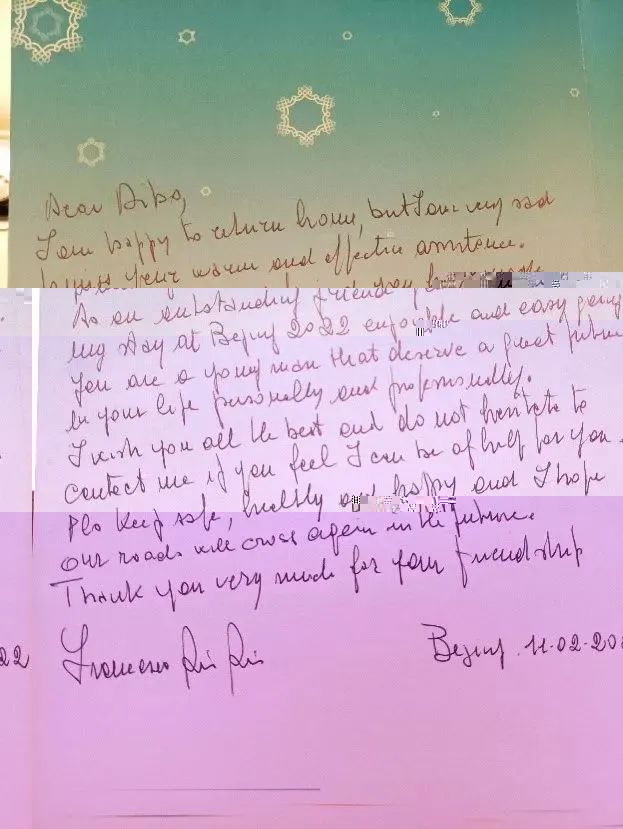 Dear
I am happy to return home, but I am very sad
your warm and effective assistence.
As an outstanding friend you
my stay at Bejing 2022 and easy going
You are a young man that deserve a great future
in your life personally and professionally.
I wish you all the best and do not hesitate to
contact me if you feel I can be of help for you.
Pls keep safe, healthy and happy and I hope
our roads will cross again in the future.
Thank you very much for your friendship
22
Francesco Bejing 11-02-20